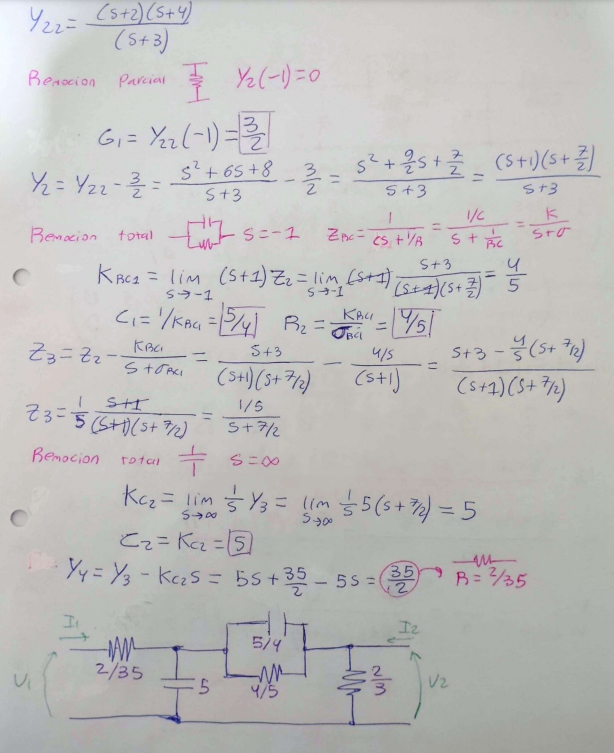 Y22 = (s+2)(s+4) / (s+3)
Remocion Parcial Y2(-1)=0
G1 = Y22(-1) = 3/2
Y2 = Y22 - 3/2 = s²+6s+8 / s+3 - 3/2 = s²+9/2s+7/2 / s+3 = (s+1)(s+7/2) / s+3
Remocion total s=-1 ZRC = 1 / cs+1/R = 1/C / s+1/RC = K / s+σ
KRC1 = lim s→-1 (s+1) Z2 = lim s→-1 (s+1) s+3 / (s+1)(s+7/2) = 4/5
C1 = 1/KRC1 = 5/4 R2 = KRC1/σRC1 = 4/5
Z3 = Z2 - KRC1 / s+σRC1 = s+3 / (s+1)(s+7/2) - 4/5 / (s+1) = s+3-4/5(s+7/2) / (s+1)(s+7/2)
Z3 = 1/5 s+1 / (s+1)(s+7/2) = 1/5 / s+7/2
Remocion total s=∞
KC2 = lim s→∞ 1/s Y3 = lim s→∞ 1/s 5(s+7/2) = 5
C2 = KC2 = 5
Y4 = Y3 - KC2s = 5s+35/2 - 5s = 35/2 → R=2/35
I1
I2
5/4
2/35
5
4/5
2/3
V1
V2